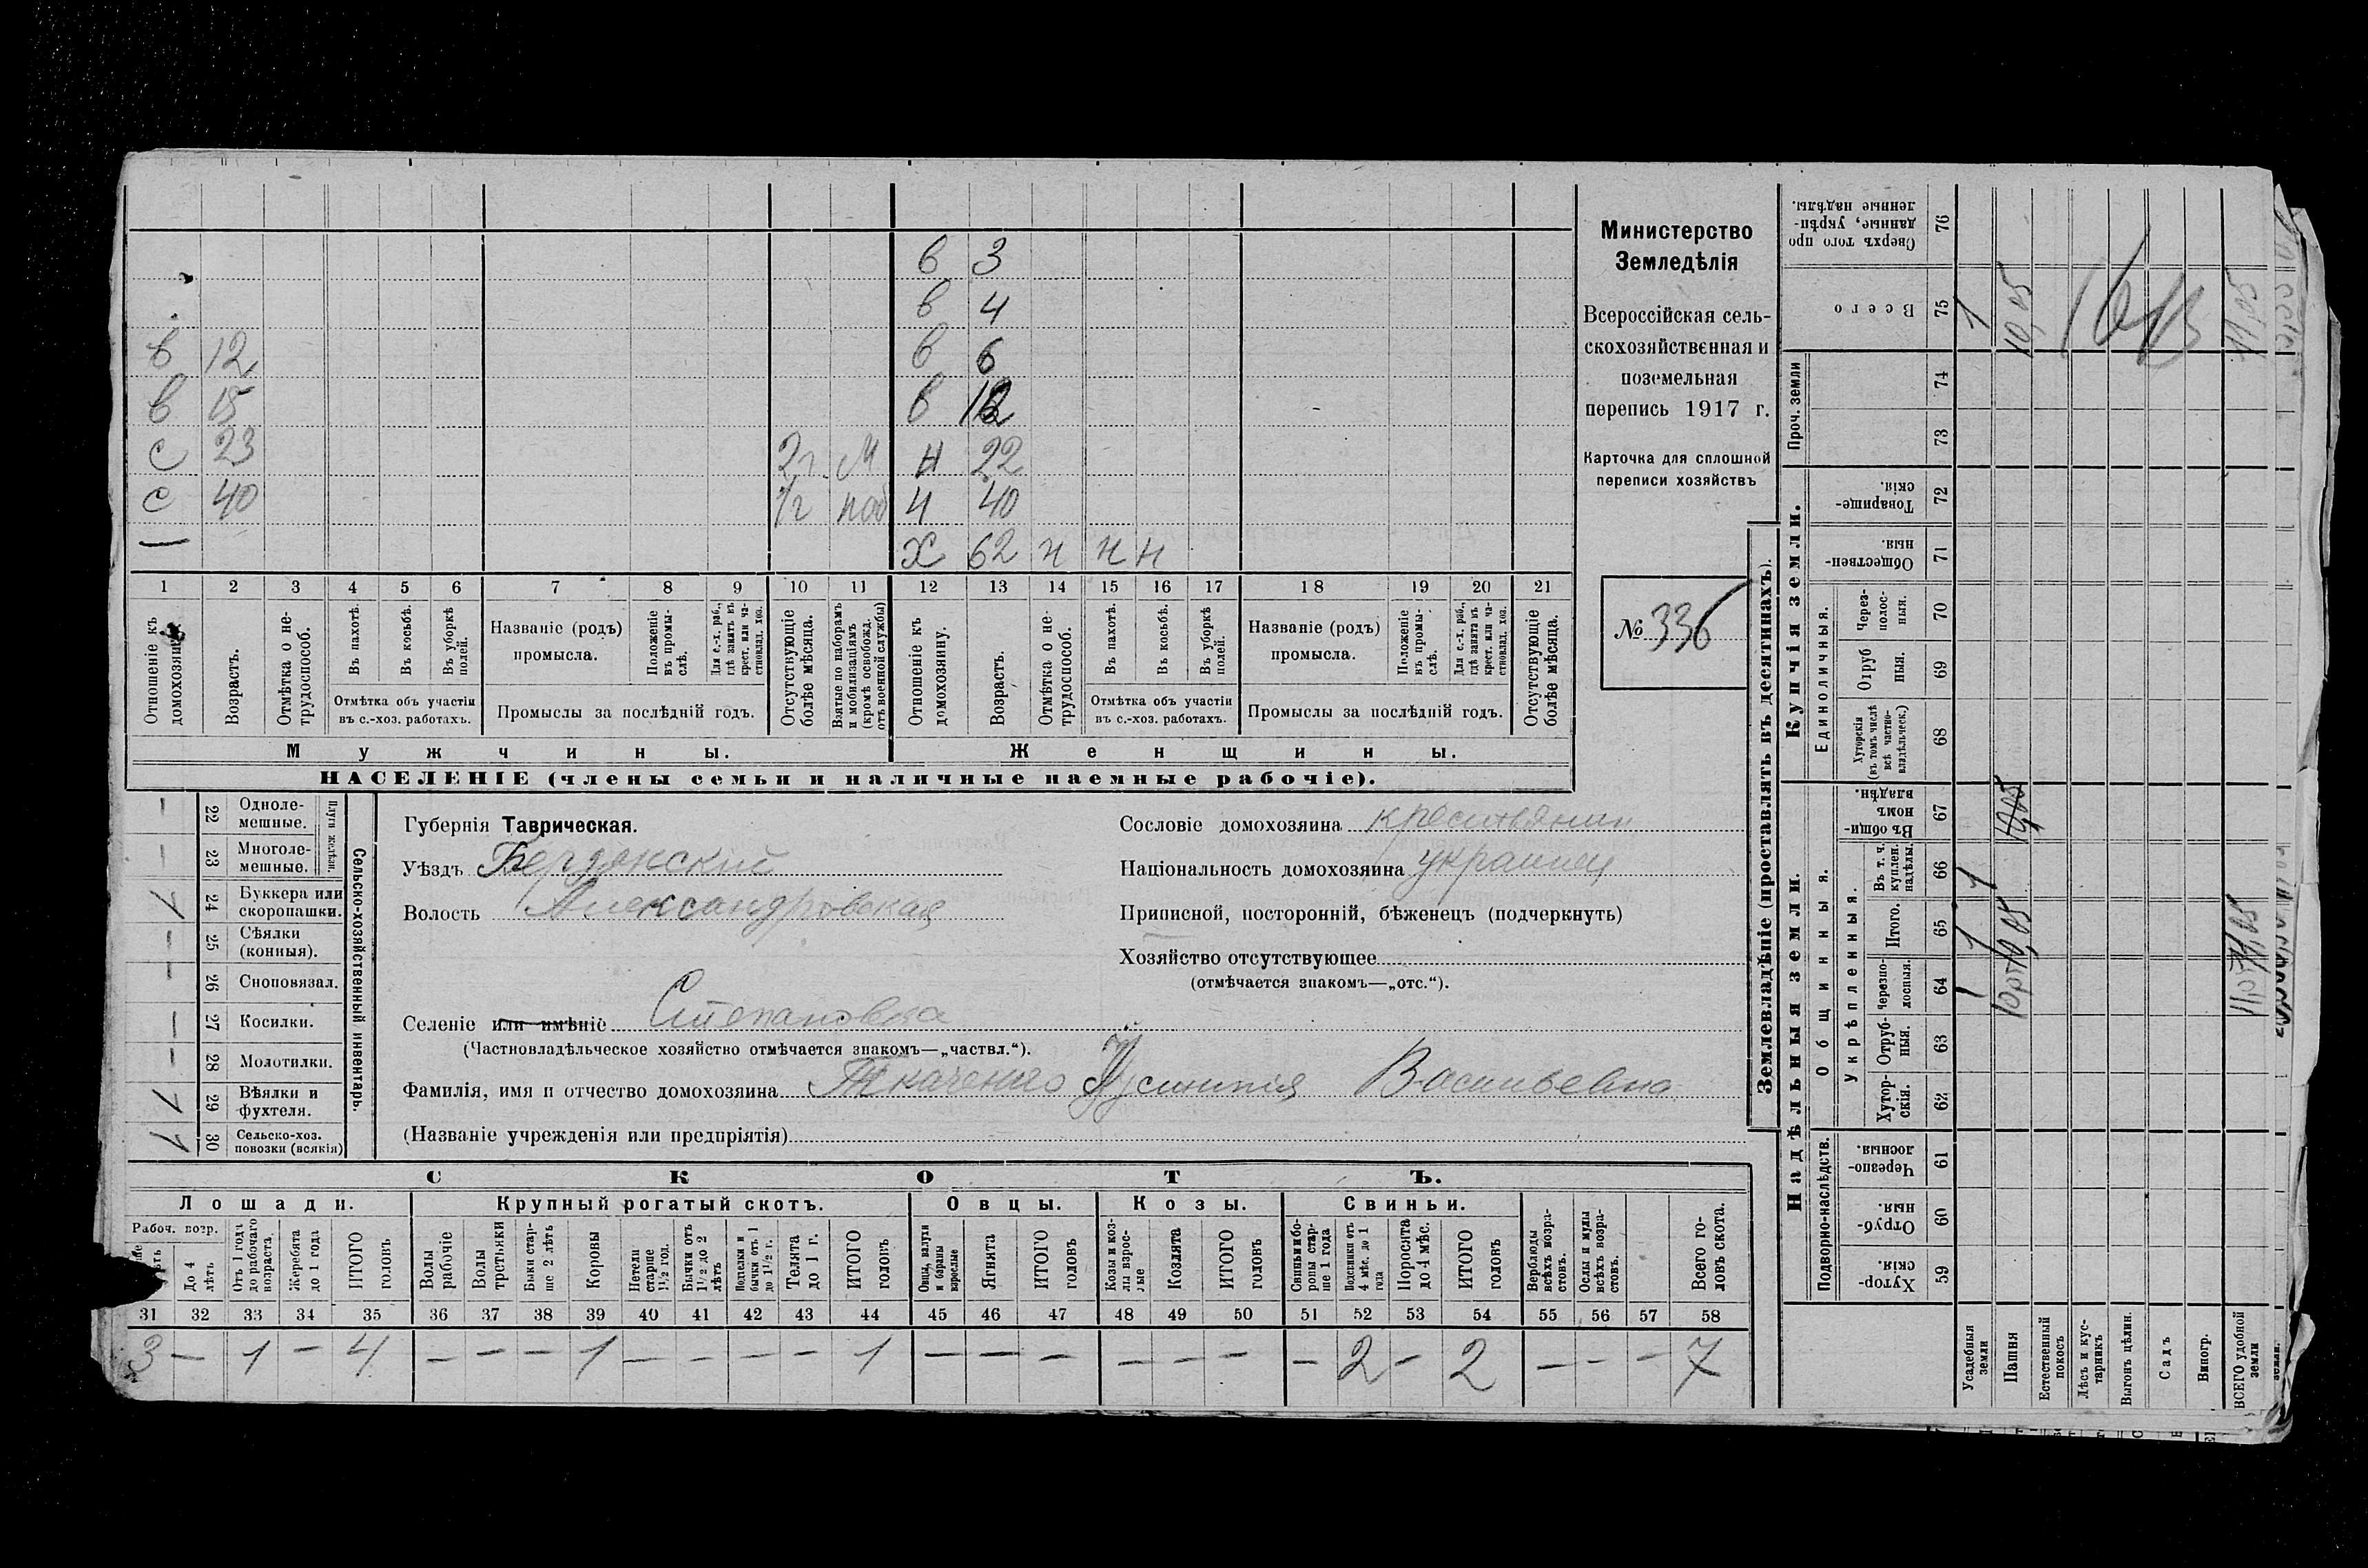 в 3
в 4
в 12 в 6
в 15 в
с 23 2г. М н 22
с 40 1/г поб н 40
— х 62 н н н
1 2 3 4 5 6 7 8 9 10 11 12 13 14 15 16 17 18 19 20 21
Отношеніе къ домохозяину.
Возрастъ.
Отмѣтка о не-
трудоспособ.
Въ пахотѣ.
Въ косьбѣ.
Въ уборкѣ
полей.
Отмѣтка объ участіи
въ с.-хоз. работахъ.
Названіе (родъ)
промысла.
Положеніе
въ промы-
слѣ.
Для с.-х. раб.,
гдѣ занятъ въ
крест. или ча-
стновлад. хоз.
Промыслы за послѣдній годъ.
Отсутствующіе
болѣе мѣсяца.
Взятые по наборамъ
и мобилизаціямъ
(кромѣ освобожд.
отъ военной службы)
Отношеніе къ
домохозяину.
Возрастъ.
Отмѣтка о не-
трудоспособ.
Въ пахотѣ.
Въ косьбѣ.
Въ уборкѣ
полей.
Отмѣтка объ участіи
въ с.-хоз. работахъ.
Названіе (родъ)
промысла.
Положеніе
въ промы-
слѣ.
Для с.-х. раб.,
гдѣ занятъ въ
крест. или ча-
стновлад. хоз.
Промыслы за послѣдній годъ.
Отсутствующіе
болѣе мѣсяца.
Мужчины. Женщины.
НАСЕЛЕНІЕ (члены семьи и наличные наемные рабочіе).
Министерство
Земледѣлія
Всероссійская сель-
скохозяйственная и
поземельная
перепись 1917 г.
Карточка для сплошной
переписи хозяйствъ
№ 336
— 22 Одноле-
мешные.
— 23 Многоле-
мешные.
Плуги желѣзн.
1 24 Буккера или
скоропашки.
— 25 Сѣялки
(конныя).
— 26 Сноповязал.
— 27 Косилки.
— 28 Молотилки.
1 29 Вѣялки и
фухтеля.
1 30 Сельско-хоз.
повозки (всякія)
Сельско-хозяйственный инвентарь.
Губернія Таврическая.
Уѣздъ Бердянский
Волость Александровская
Селеніе или имѣніе Степановка
(Частновладѣльческое хозяйство отмѣчается знакомъ—„частвл.“).
Фамилія, имя и отчество домохозяина Ткаченко Устинія Васильевна
(Названіе учрежденія или предпріятія)
Сословіе домохозяина крестьянин
Національность домохозяина украинец
Приписной, посторонній, бѣженецъ (подчеркнуть)
Хозяйство отсутствующее
(отмѣчается знакомъ—„отс.“).
СКОТЪ.
Лошади. Крупный рогатый скотъ. Овцы. Козы. Свиньи.
Рабоч. возр.
До 4
лѣтъ
Отъ 1 года
до рабочаго
возраста.
Жеребята
до 1 года
ИТОГО
головъ
Волы
рабочіе
Волы
третьяки
Быки стар-
ше 2 лѣтъ
Коровы
Нетели
старше
1½ год.
Бычки отъ
1½ до 2
лѣтъ
Подтелки и
бычки отъ 1
до 1½ г.
Телята
до 1 г.
ИТОГО
головъ
Овцы, валухи
и бараны
взрослые
Ягнята
ИТОГО
головъ
Козы и коз-
лы взрос-
лые
Козлята
ИТОГО
головъ
Свиньи и бо-
ровы стар-
ше 1 года
Подсвинки отъ
4 мѣс. до 1
года
Поросята
до 4 мѣс.
ИТОГО
головъ
Верблюды
всѣхъ возра-
стовъ.
Ослы и мулы
всѣхъ возра-
стовъ.
Всего го-
ловъ скота.
31 32 33 34 35 36 37 38 39 40 41 42 43 44 45 46 47 48 49 50 51 52 53 54 55 56 57 58
3 — 1 — 4 — — — 1 — — — — 1 — — — — — — — 2 — 2 — — — 7
Землевладѣніе (проставлять въ десятинахъ).
Сверхъ того про
данные, укрѣп-
ленные надѣлы.
76
Всего
75 1 10,05 11,05
Проч. земли
74
73
Купчія земли.
Товарище-
скія.
72
Обществен-
ныя.
71
Единоличныя.
Через-
полос-
ныя.
70
Отруб
ныя.
69
Хуторскія
(въ томъ числѣ
всѣ частно-
владѣльческ.)
68
Надѣльныя земли.
Общинныя.
Въ общин-
номъ
владѣн.
67
Укрѣпленныя.
Въ т. ч.
куплен.
надѣлы.
66
Итого.
65
Черезпо-
лосныя.
64
Отруб-
ныя.
63
Хутор-
скія.
62
Подворно-наслѣдств.
Черезпо-
лосныя.
61
Отруб-
ныя.
60
Хутор-
скія.
59
Усадебныя
земли
Пашня
Естественный
покосъ
Лѣсъ и кус-
тарникъ
Выгонъ цѣлин.
Садъ
Виногр.
ВСЕГО удобной
земли